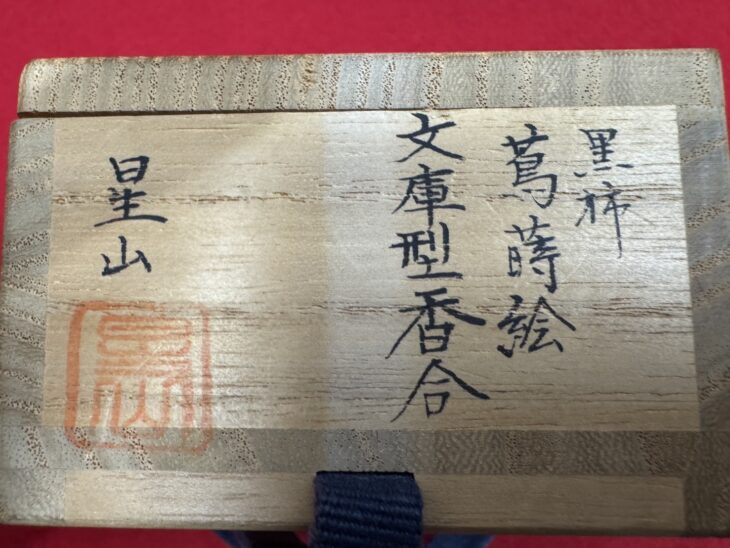 黒柿
蔦蒔絵
文庫型香合
星山